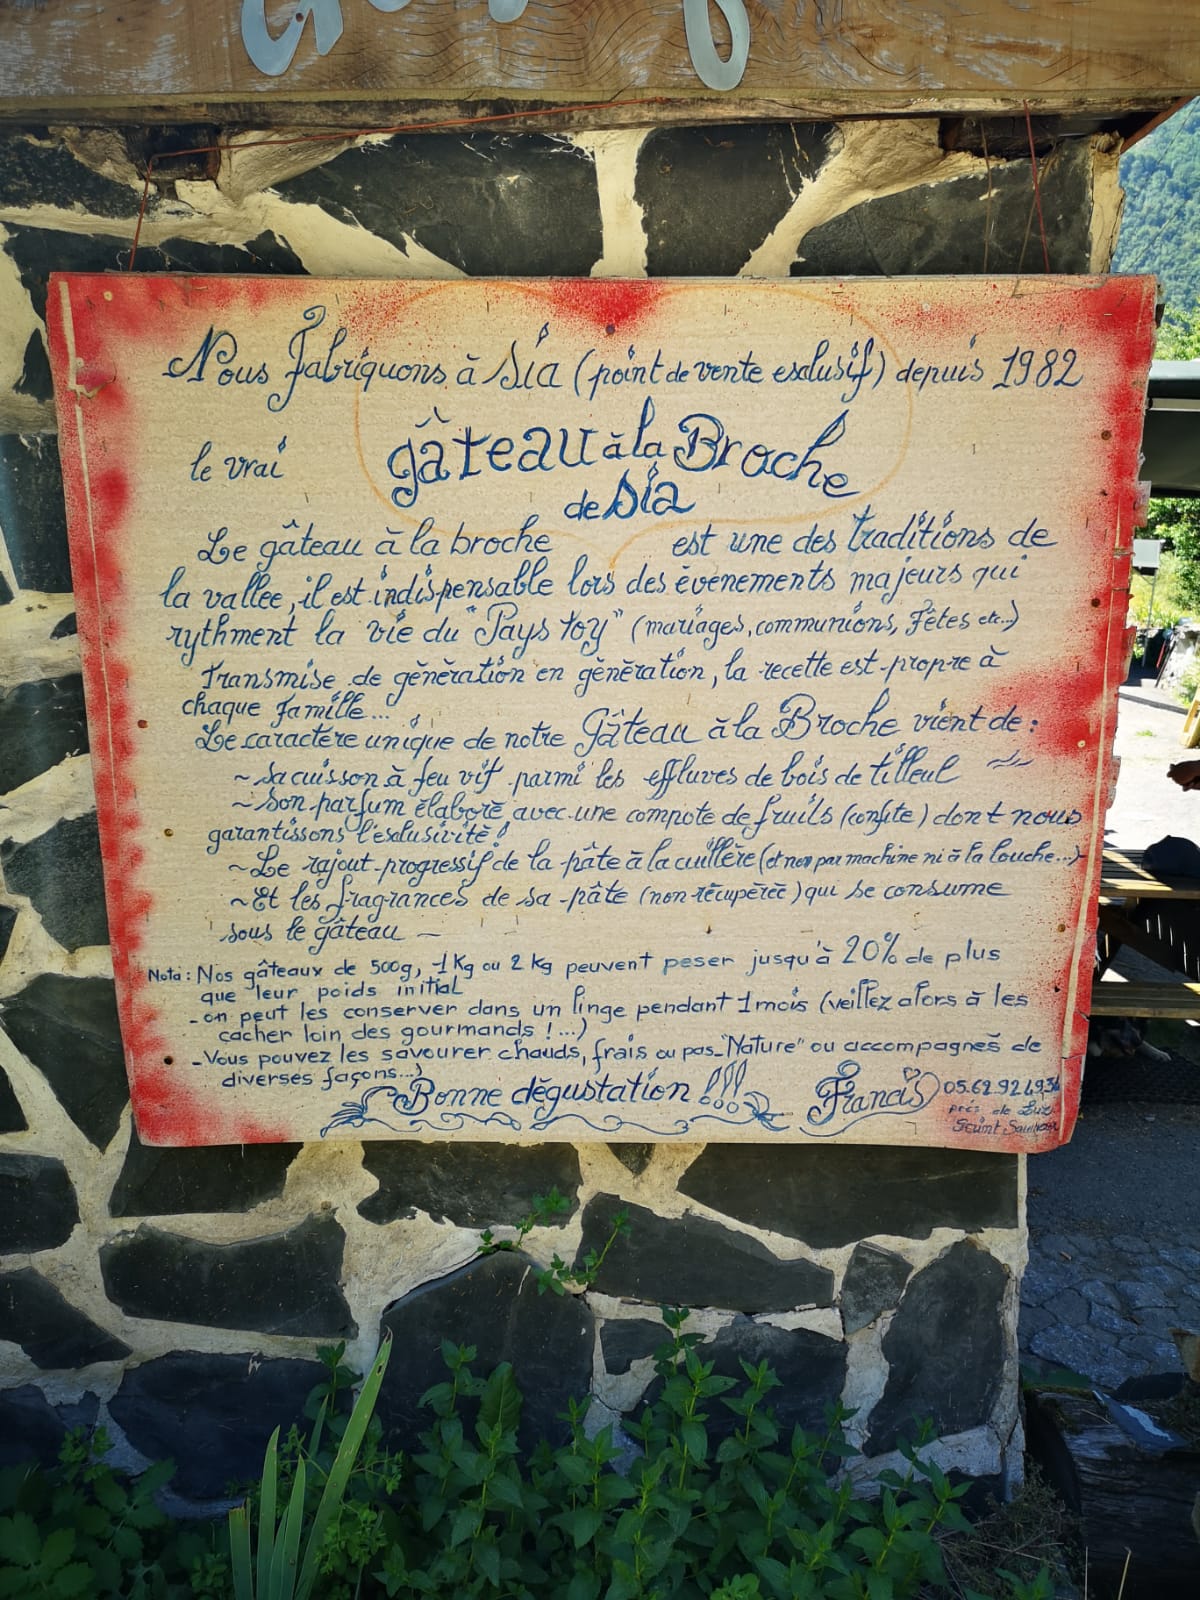 Nous Fabriquons à Sia (point de vente exclusif) depuis 1982
le vrai gâteau à la Broche
de Sia
Le gâteau à la broche est une des traditions de
la vallée, il est indispensable lors des évènements majeurs qui
rythment la vie du "Pays Toy" (mariages, communions, Fêtes etc..)
Transmise de génération en génération, la recette est propre à
chaque famille...
Le caractère unique de notre Gâteau à la Broche vient de :
~ Sa cuisson à feu vif parmi les effluves de bois de tilleul
~ Son parfum élaboré avec une compote de fruits (confite) dont nous
garantissons l'exclusivité !
~ Le rajout progressif de la pâte à la cuillère (et non par machine ni à la louche...)
~ Et les fragrances de sa pâte (non récupérée) qui se consume
sous le gâteau ~
Nota : Nos gâteaux de 500g, 1Kg ou 2 Kg peuvent peser jusqu'à 20% de plus
que leur poids initial
- on peut les conserver dans un linge pendant 1 mois (veillez alors à les
cacher loin des gourmands !...)
- Vous pouvez les savourer chauds, frais ou pas "Nature" ou accompagnés de
diverses façons...)
Bonne dégustation !!! Francis 05.62.92
près de Luz
Saint Sauveur